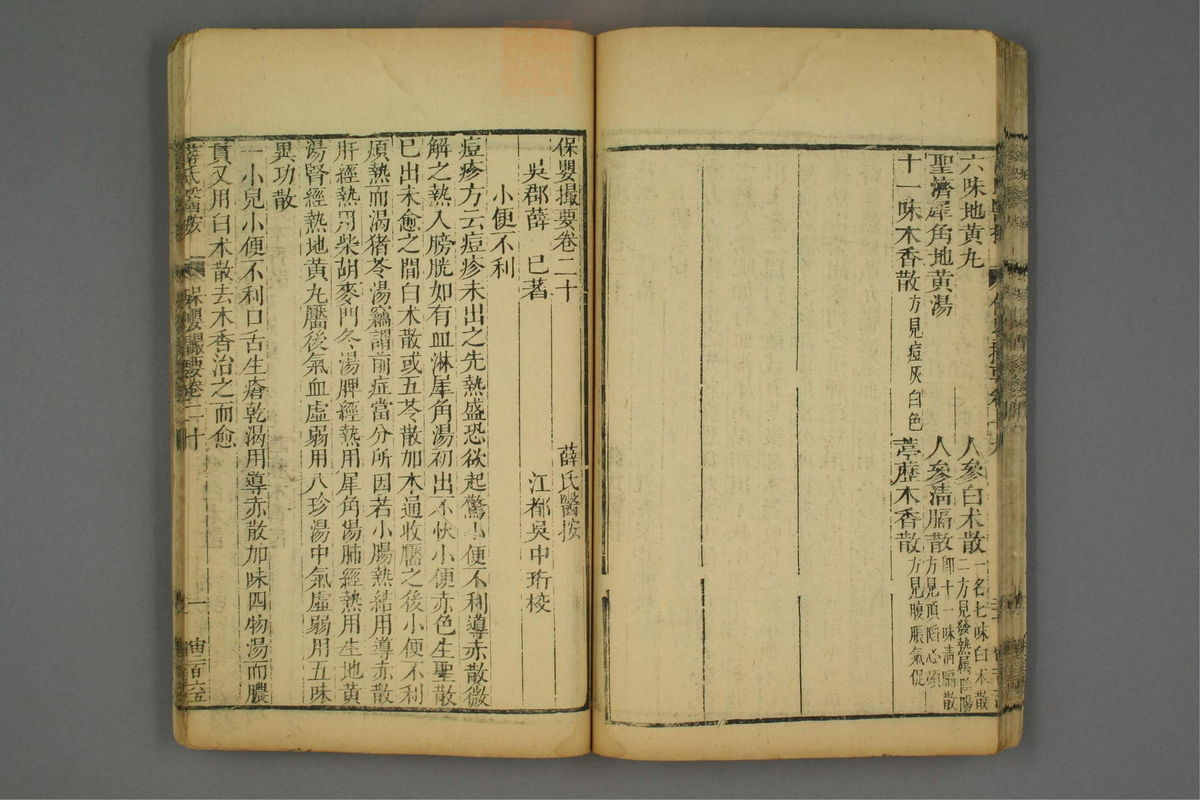 六味地黃丸 人參白朮散 一名七味白朮散二方見發熱屬陰陽
聖濟犀角地黃湯 人參淸膈散 卽十一味淸膈散方見頂陷心煩
十一味木香散 方見痘灰白色 葶藶木香散 方見腹脹氣促
保嬰撮要卷二十 薛氏醫按
吳郡薛 已著 江都吳中珩校
小便不利
痘疹方云痘疹未出之先熱盛恐欲起驚小便不利導赤散微
解之熱入膀胱如有血淋犀角湯初出不快小便赤色生聖散
已出未愈之間白朮散或五苓散加木通收靨之後小便不利
煩熱而渴猪苓湯竊謂前症當分所因若小腸熱結用導赤散
肝經熱用柴胡麥門冬湯脾經熱用犀角湯肺經熱用生地黃
湯腎經熱地黃丸靨後氣血虛弱用八珍湯中氣虛弱用五味
異功散
一小兒小便不利口舌生瘡乾渴用導赤散加味四物湯而膿
貫又用白朮散去木香治之而愈
薛氏醫按 保嬰撮要卷二十 一